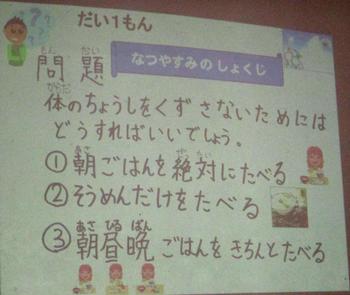 だい1もん
問題 なつやすみの しょくじ
体のちょうしをくずさないためには
どうすればいいでしょう。
①朝ごはんを絶対にたべる
②そうめんだけをたべる
③朝昼晩ごはんをきちんとたべる